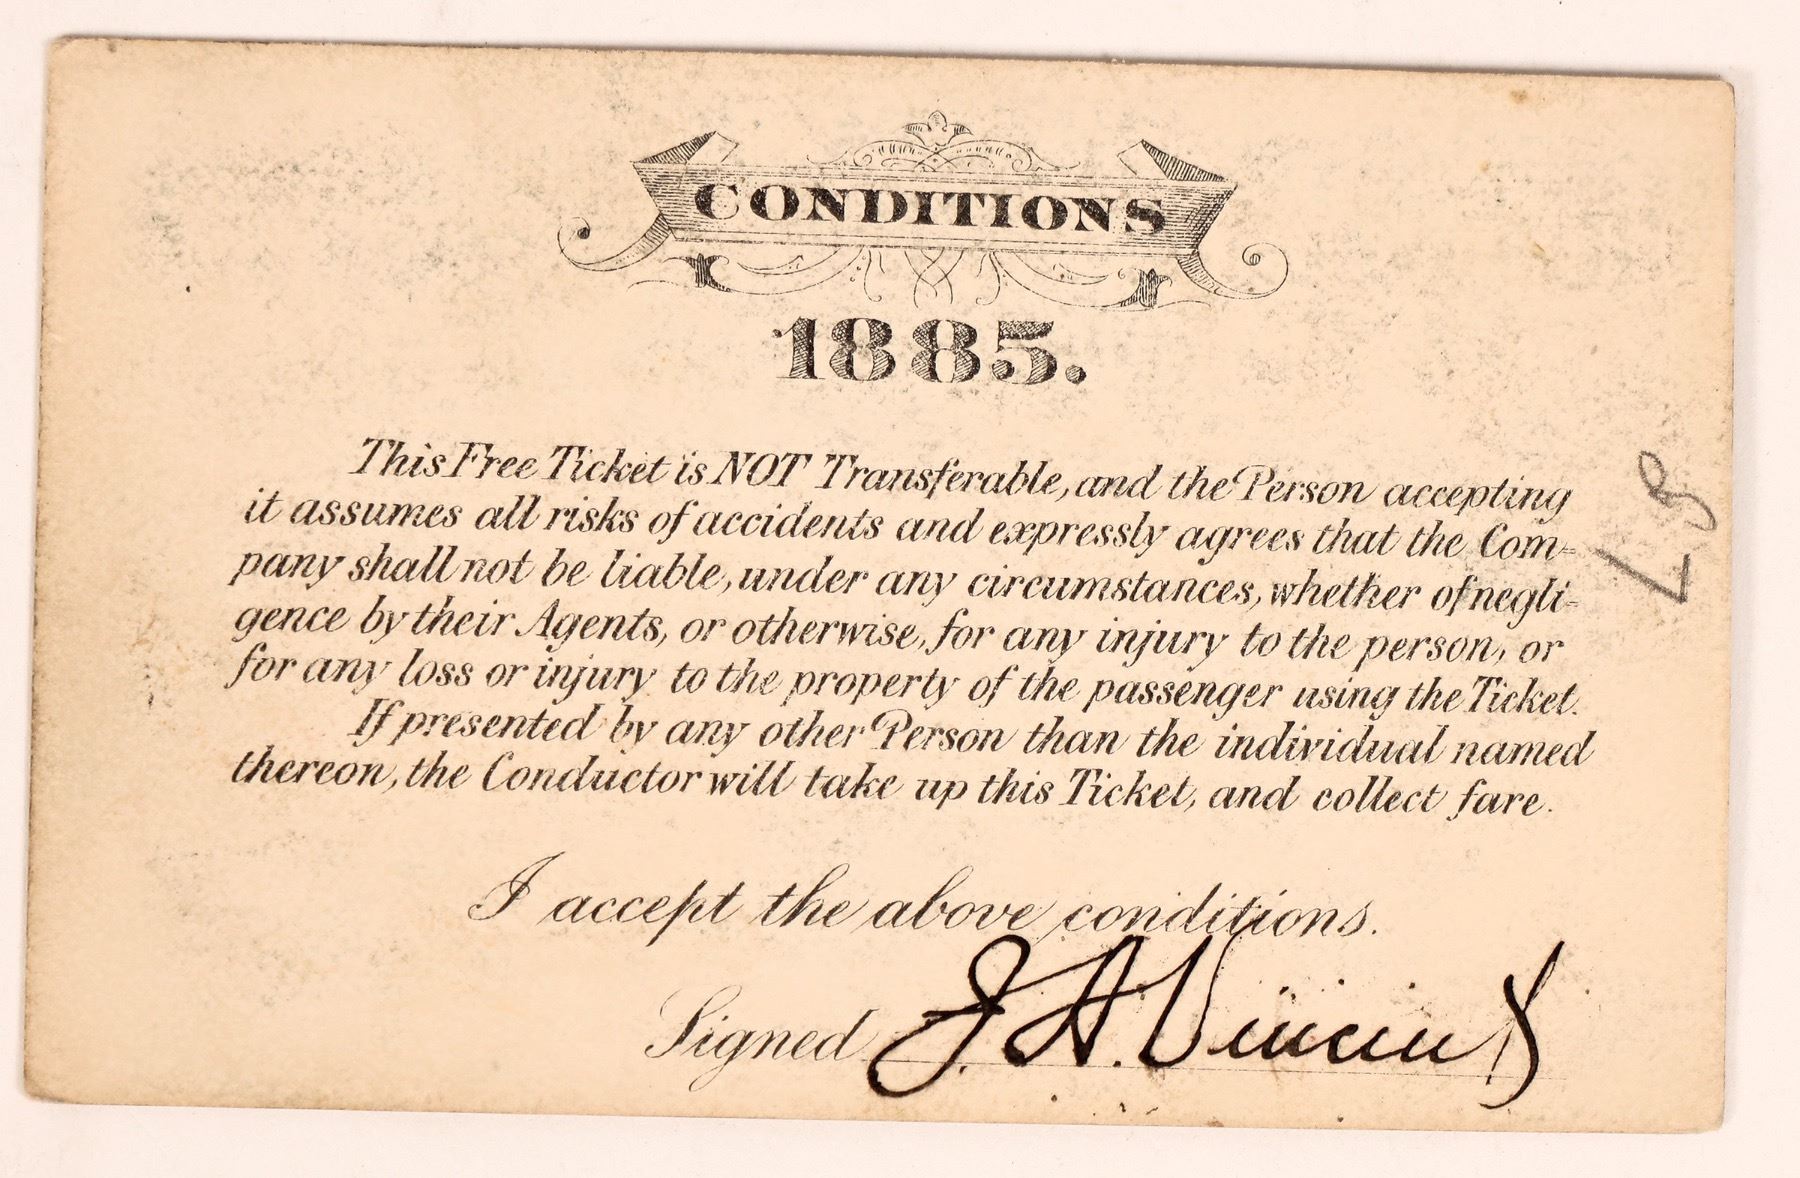 CONDITIONS
1885.
This Free Ticket is NOT Transferable, and the Person accepting
it assumes all risks of accidents and expressly agrees that the Com-
pany shall not be liable, under any circumstances, whether of negli-
gence by their Agents, or otherwise, for any injury to the person, or
for any loss or injury to the property of the passenger using the Ticket.
If presented by any other Person than the individual named
thereon, the Conductor will take up this Ticket, and collect fare.
I accept the above conditions.
Signed J. A. Vincent